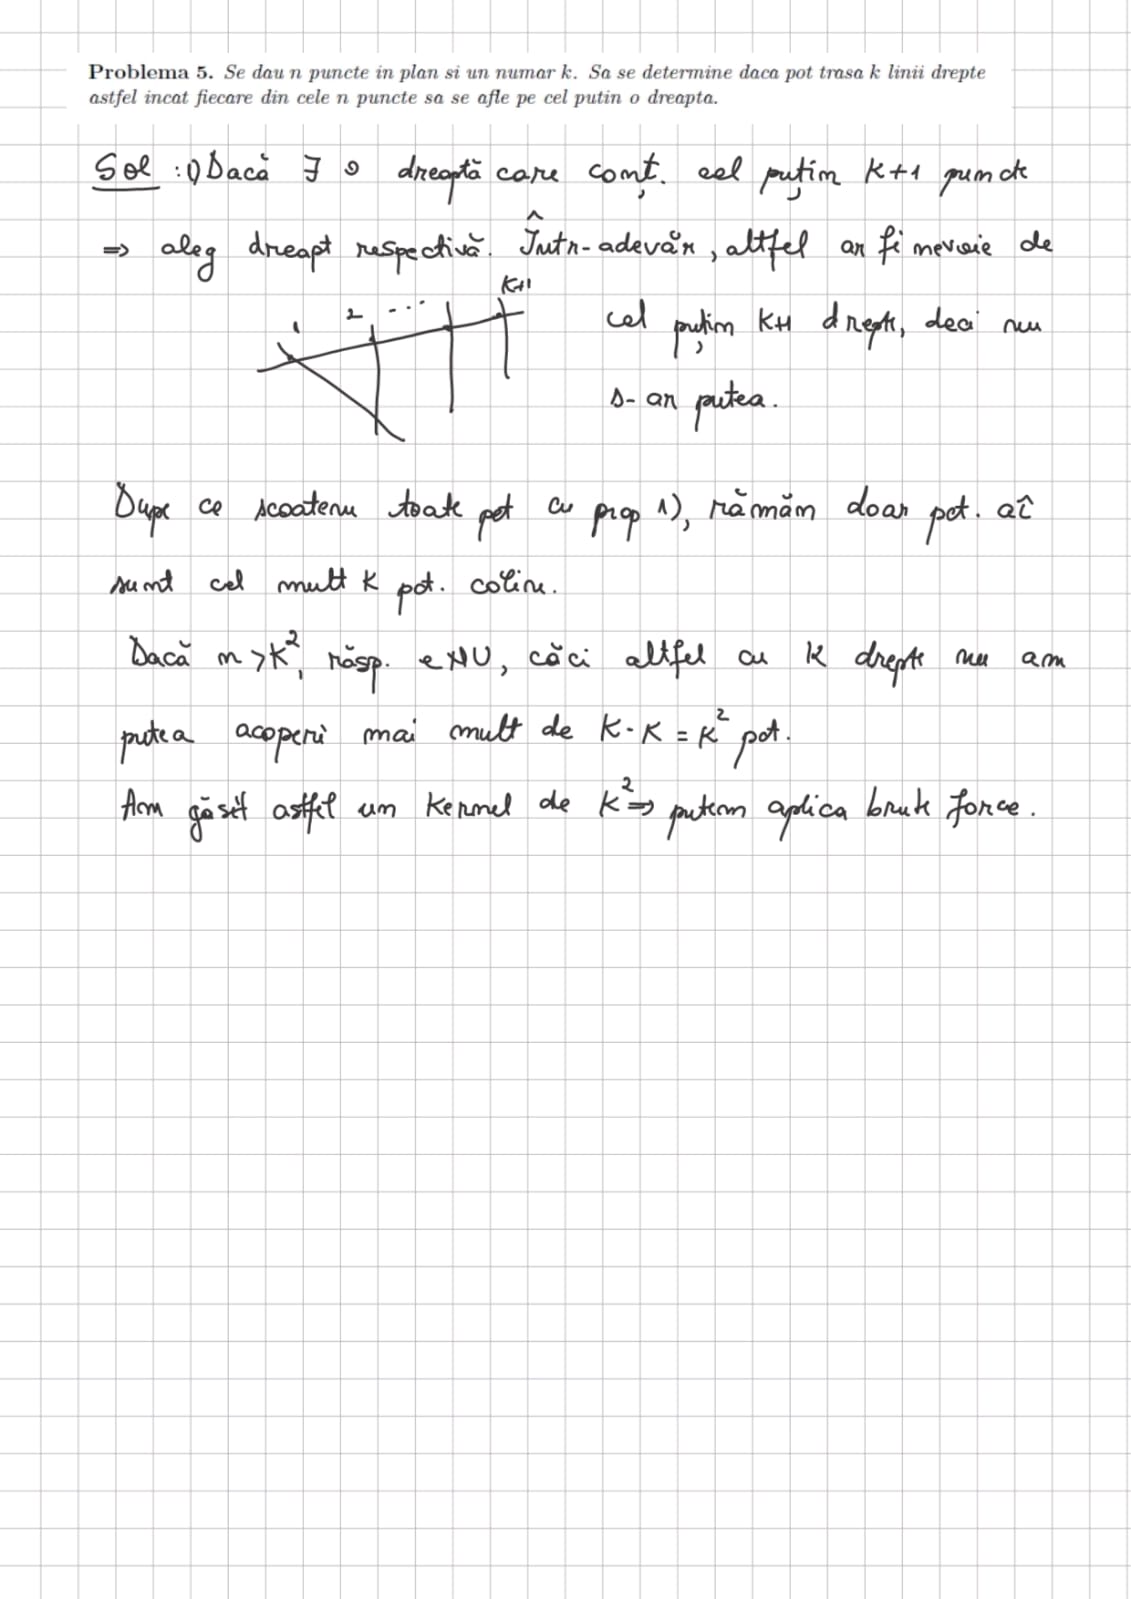 Problema 5. Se dau n puncte in plan si un numar k. Sa se determine daca pot trasa k linii drepte
astfel incat fiecare din cele n puncte sa se afle pe cel putin o dreapta.
Sol : 1) Dacă ∃ o dreaptă care conț. cel puțin k+1 puncte
=> aleg dreapt respectivă. Într-adevăr, altfel ar fi nevoie de
1 2 ... k+1
cel puțin k+1 drepte, deci nu
s-ar putea.
Dupe ce scoatem toate pct cu prop 1), rămân doar pct. aî
sunt cel mult k pct. colin.
Dacă n > k², răsp. e NU, căci altfel cu k drepte nu am
putea acoperi mai mult de k · k = k² pct.
Am găsit astfel un kernel de k² => putem aplica brute force.